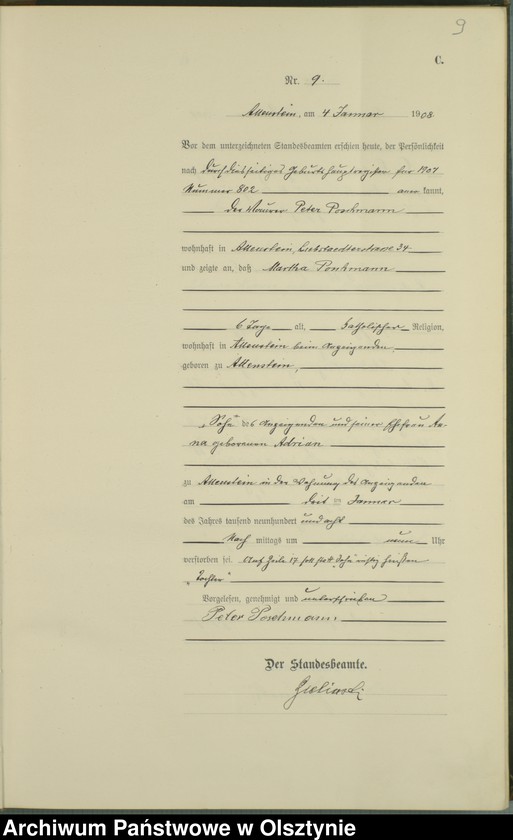 9
C.
Nr. 9.
Allenstein, am 4 Januar 1908
Vor dem unterzeichneten Standesbeamten erschien heute, der Persönlichkeit
nach durch diesseitiges Geburtshauptregister für 1907
Nummer 802 aner kannt,
der Maurer Peter Poschmann
wohnhaft in Allenstein, 34
und zeigte an, daß Martha Poschmann
6 Tage alt, katholischer Religion,
wohnhaft in Allenstein beim Anzeigenden,
geboren zu Allenstein,
„Sohn" des Anzeigenden und seiner Ehefrau An-
na geborenen Adrian
zu Allenstein in der Wohnung des Anzeigenden
am Januar
des Jahres tausend neunhundert und acht
Nach mittags um neun Uhr
verstorben sei. Auf Zeile 17 soll statt „Sohn" richtig heißen
„Tochter"
Vorgelesen, genehmigt und unterschrieben
Peter Poschmann
Der Standesbeamte.
Archiwum Państwowe w Olsztynie